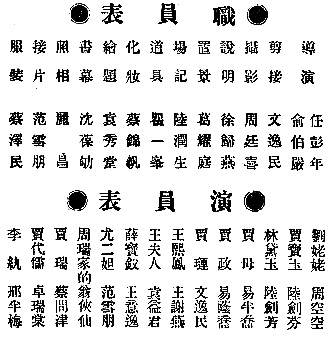 職員表
導演 任彭年 俞伯嚴
剪接 文逸民
攝影 周廷喜
說明 徐歸燕
置景 葛耀庭
場記 陸潤生
道具 瞿一峯
化妝 蔡錦帆
繪題 袁秀棠
書幕 沈葆劬
照相 麗昌
接片 范雪朋
服裝 蔡澤民
演員表
劉姥姥 周空空
賈寶玉 陸劍芬
林黛玉 陸劍芳
賈母 易半喬
賈政 易蔭喬
賈璉 文逸民
王熙鳳 王謝燕
王夫人 袁益君
薛寶釵 王意逸
尤二姐 范雪朋
周瑞家的 翁俠仙
賈瑞 蔡問津
賈代儒 卓瑞棠
李紈 邢半梅